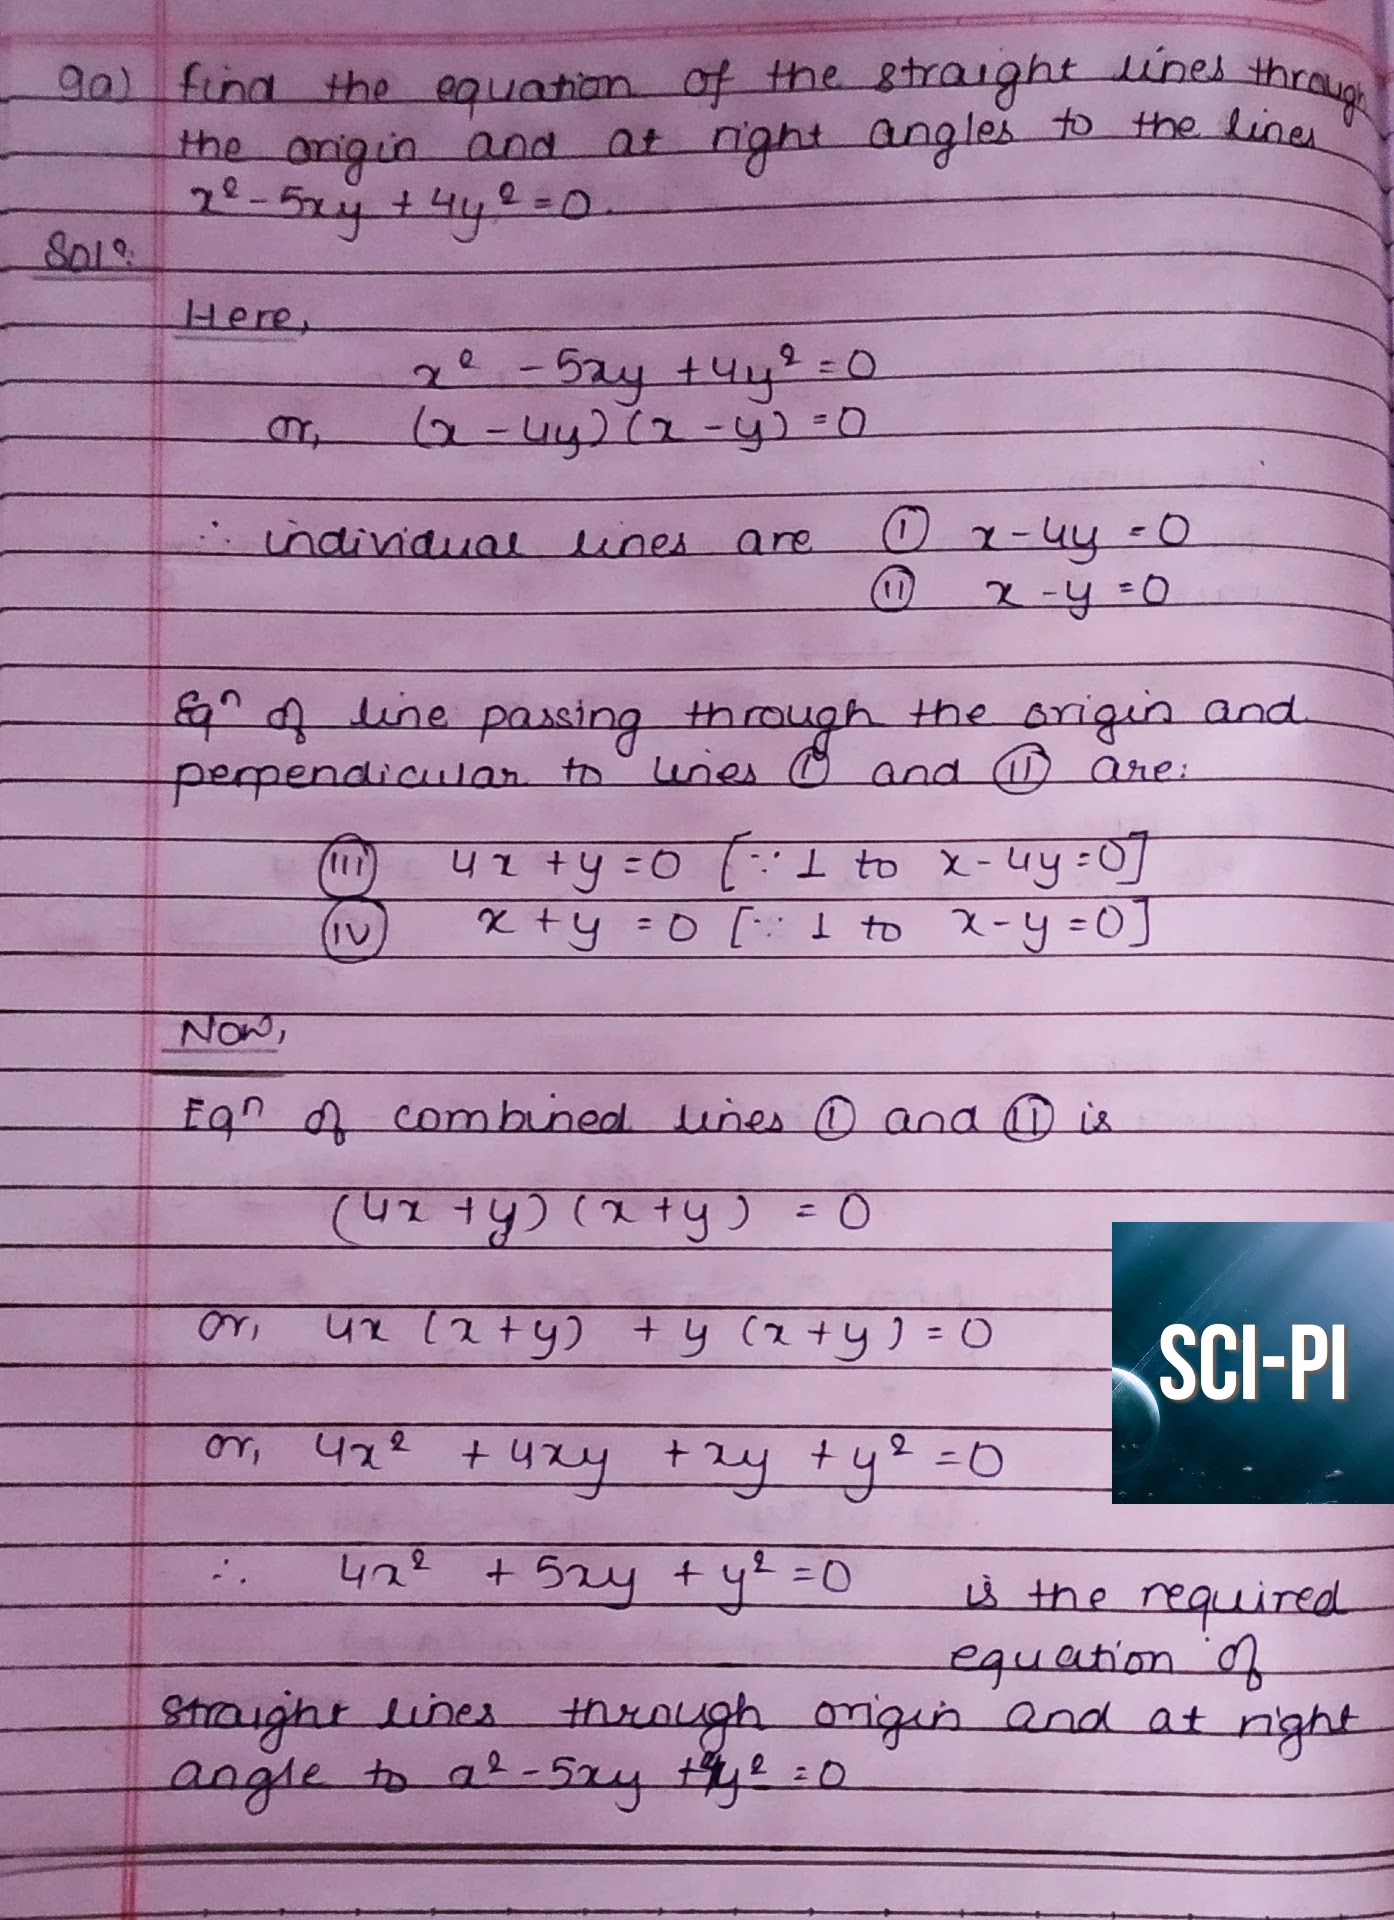 9a) find the equation of the straight lines through
the origin and at right angles to the lines
x² - 5xy + 4y² = 0.
Solⁿ:
Here,
x² - 5xy + 4y² = 0
or, (x - 4y) (x - y) = 0
∴ individual lines are ⓘ x - 4y = 0
(II) x - y = 0
Eqⁿ of line passing through the origin and
perpendicular to lines (I) and (II) are:
(III) 4x + y = 0 [∵ ⊥ to x - 4y = 0]
(IV) x + y = 0 [∵ ⊥ to x - y = 0]
Now,
Eqⁿ of combined lines (I) and (II) is
(4x + y) (x + y) = 0
or, 4x (x + y) + y (x + y) = 0
SCI-PI
or, 4x² + 4xy + xy + y² = 0
∴ 4x² + 5xy + y² = 0 is the required
equation of
straight lines through origin and at right
angle to x² - 5xy + 4y² = 0